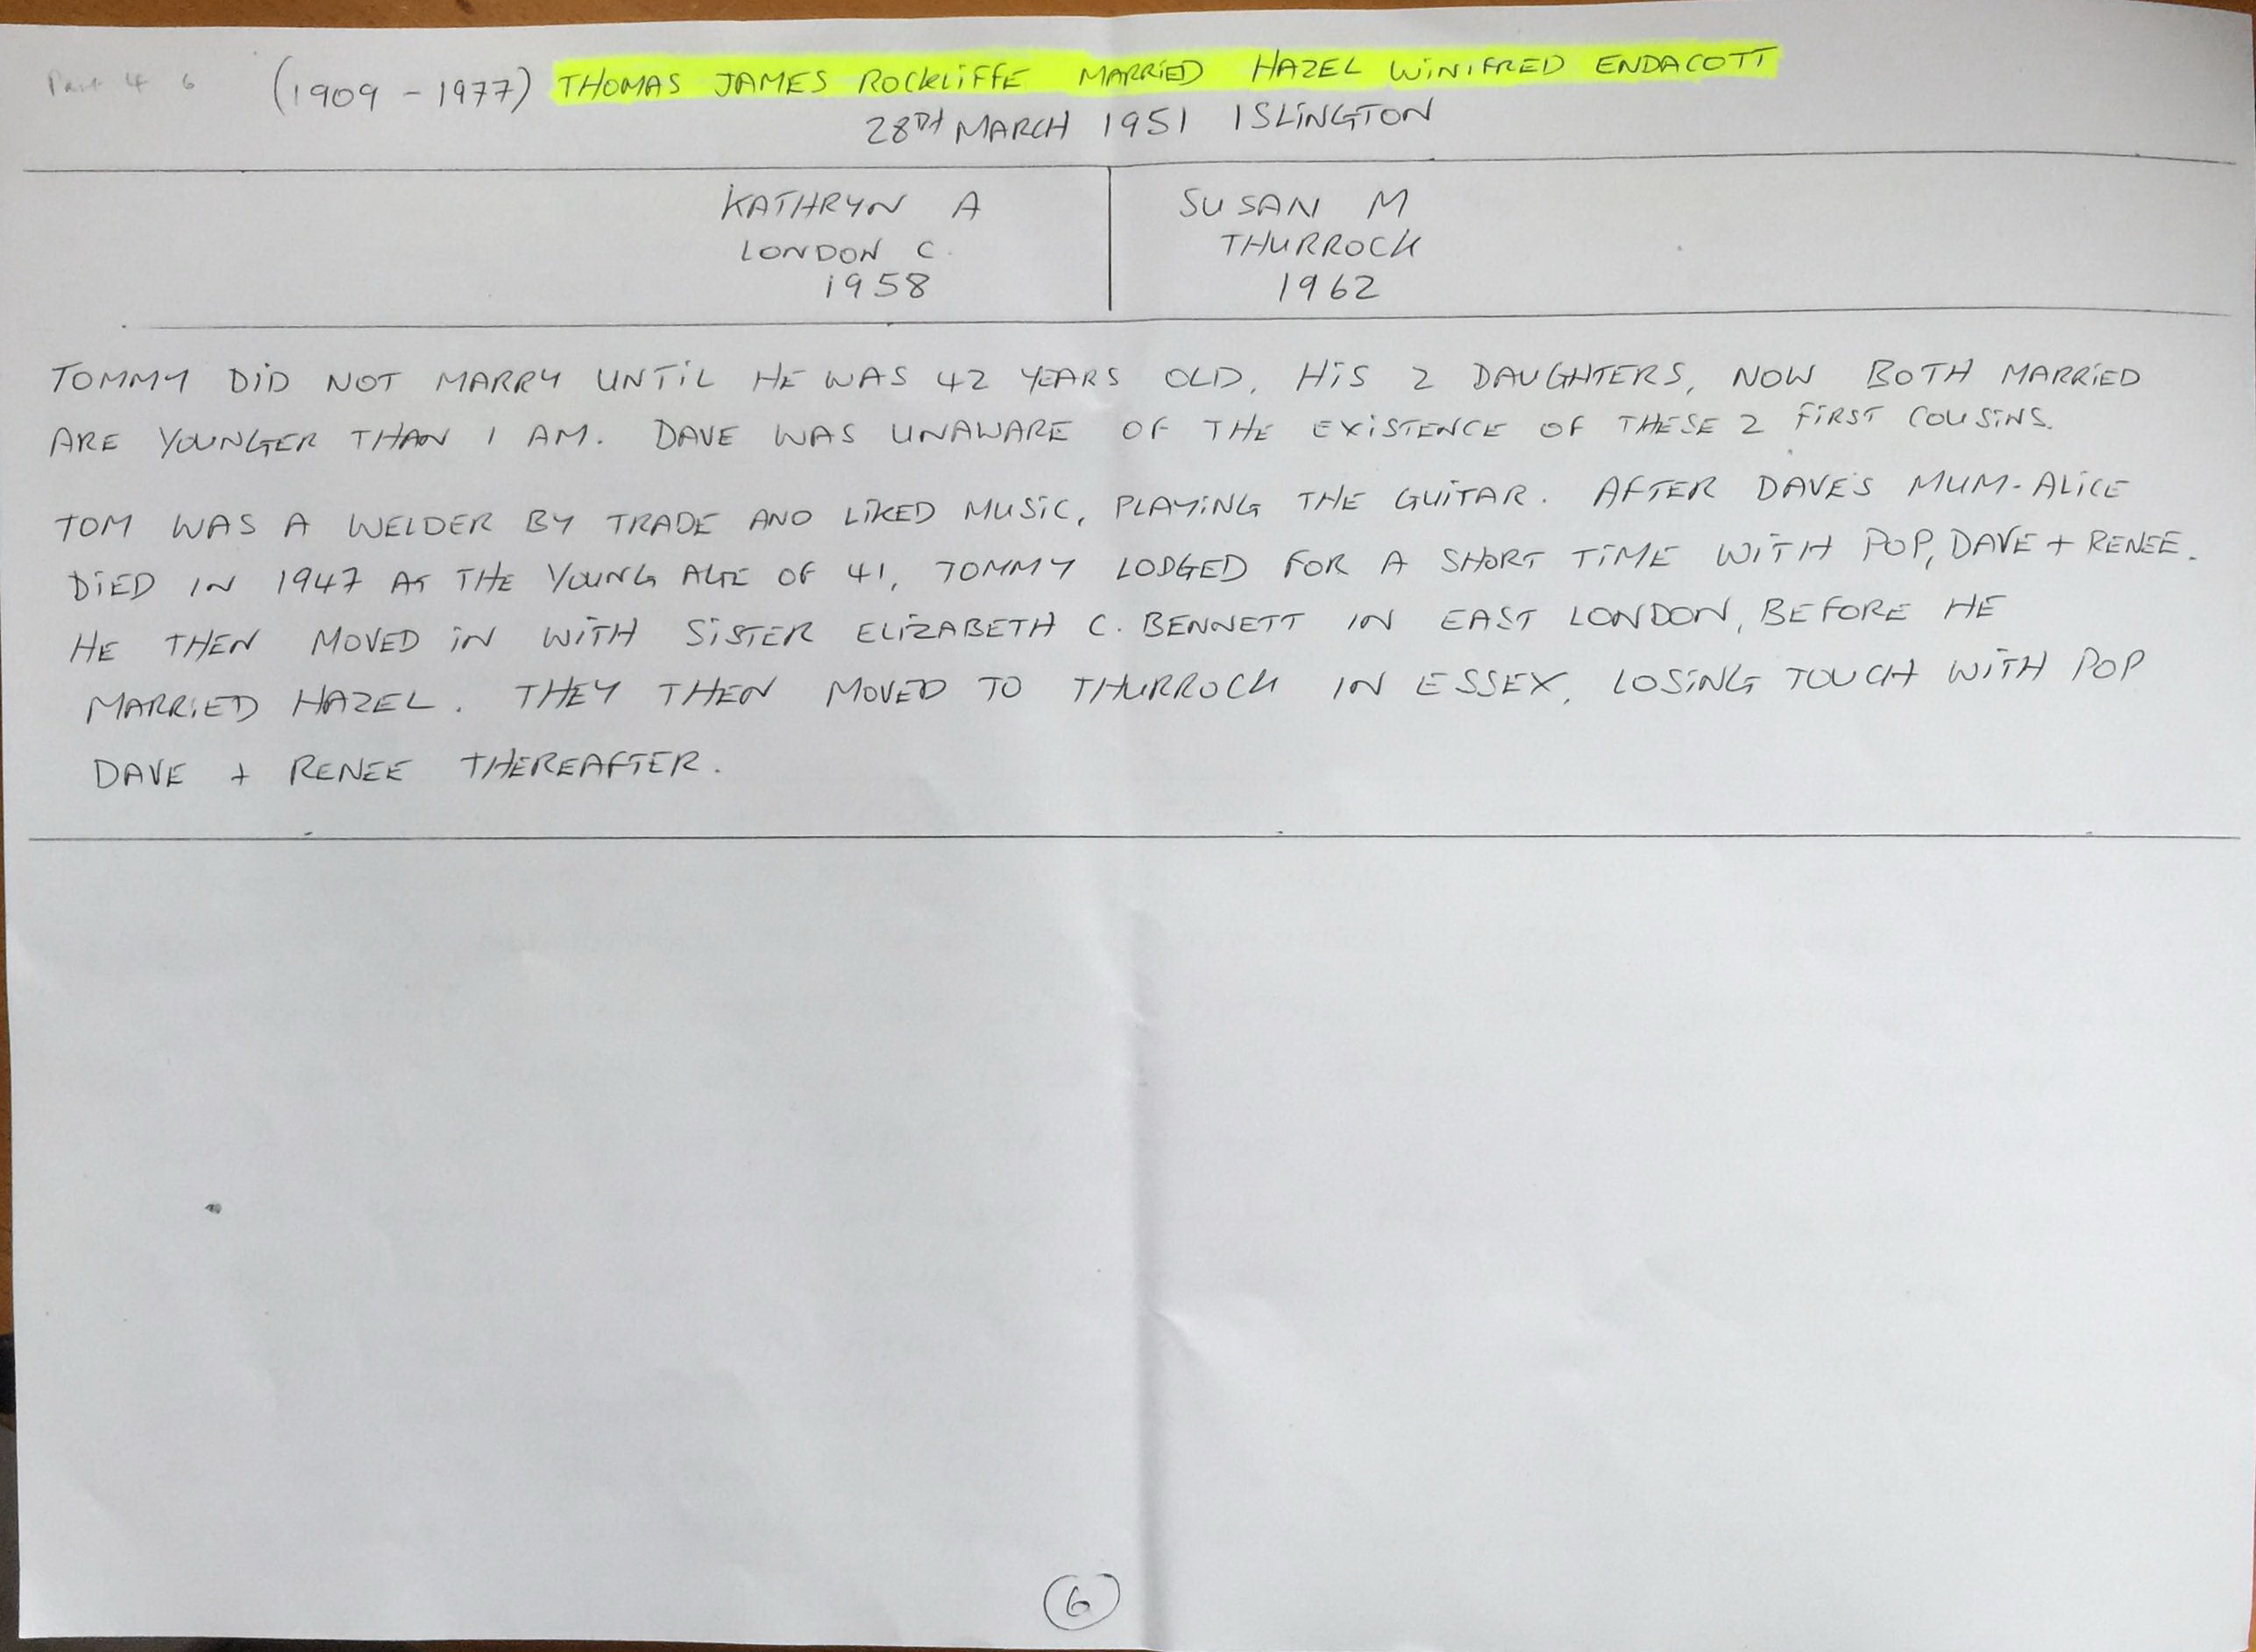 Part 4 6
(1909 - 1977) THOMAS JAMES ROCKLIFFE MARRIED HAZEL WINIFRED ENDACOTT
28TH MARCH 1951 ISLINGTON
KATHRYN A
LONDON C.
1958
SUSAN M
THURROCK
1962
TOMMY DID NOT MARRY UNTIL HE WAS 42 YEARS OLD. HIS 2 DAUGHTERS, NOW BOTH MARRIED
ARE YOUNGER THAN I AM. DAVE WAS UNAWARE OF THE EXISTENCE OF THESE 2 FIRST COUSINS.
TOM WAS A WELDER BY TRADE AND LIKED MUSIC, PLAYING THE GUITAR. AFTER DAVE'S MUM-ALICE
DIED IN 1947 AT THE YOUNG AGE OF 41, TOMMY LODGED FOR A SHORT TIME WITH POP, DAVE + RENEE.
HE THEN MOVED IN WITH SISTER ELIZABETH C. BENNETT IN EAST LONDON, BEFORE HE
MARRIED HAZEL. THEY THEN MOVED TO THURROCK IN ESSEX, LOSING TOUCH WITH POP
DAVE + RENEE THEREAFTER.
6